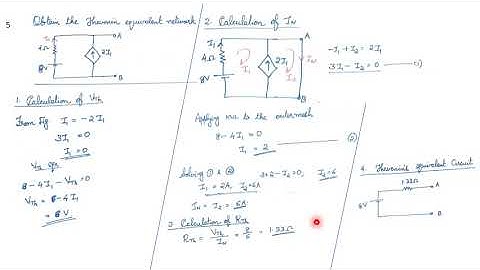 5
Obtain the Thevenin equivalent network
I₁
4Ω
8V
2I₁
A
B
1. Calculation of Vth
From fig I₁ = -2I₁
3I₁ = 0
I₁ = 0
8 - 4I₁ - VTh = 0
VTh = 8 - 4I₁
2. Calculation of IN
I₁
4Ω
8V
I₁
2I₁
I₂
IN
A
B
-I₁ + I₂ = 2I₁
3I₁ - I₂ = 0 (1)
Applying to the outer mesh
8 - 4I₁ = 0
I₁ = 2 (2)
Solving ① & ②
3*2 - I₂ = 0, I₂ = 6
I₁ = 2A, I₂ = 6A
IN = I₂ = 6A
3. Calculation of RTh
RTh = VTh/IN = 8/6 = 1.33Ω
4. Thevenin's equivalent Circuit
1.33Ω
A
B